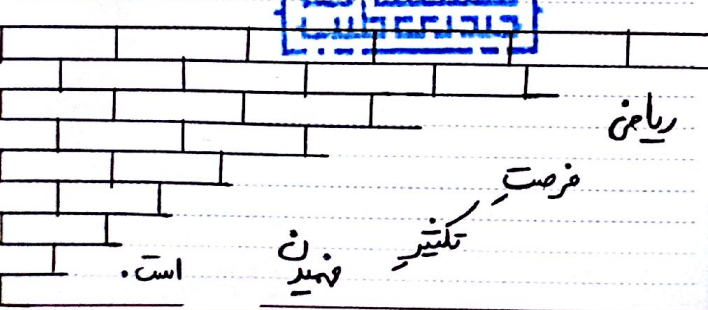 ریاضی
فرصتِ
تکثیرِ
فهمیدن
است.